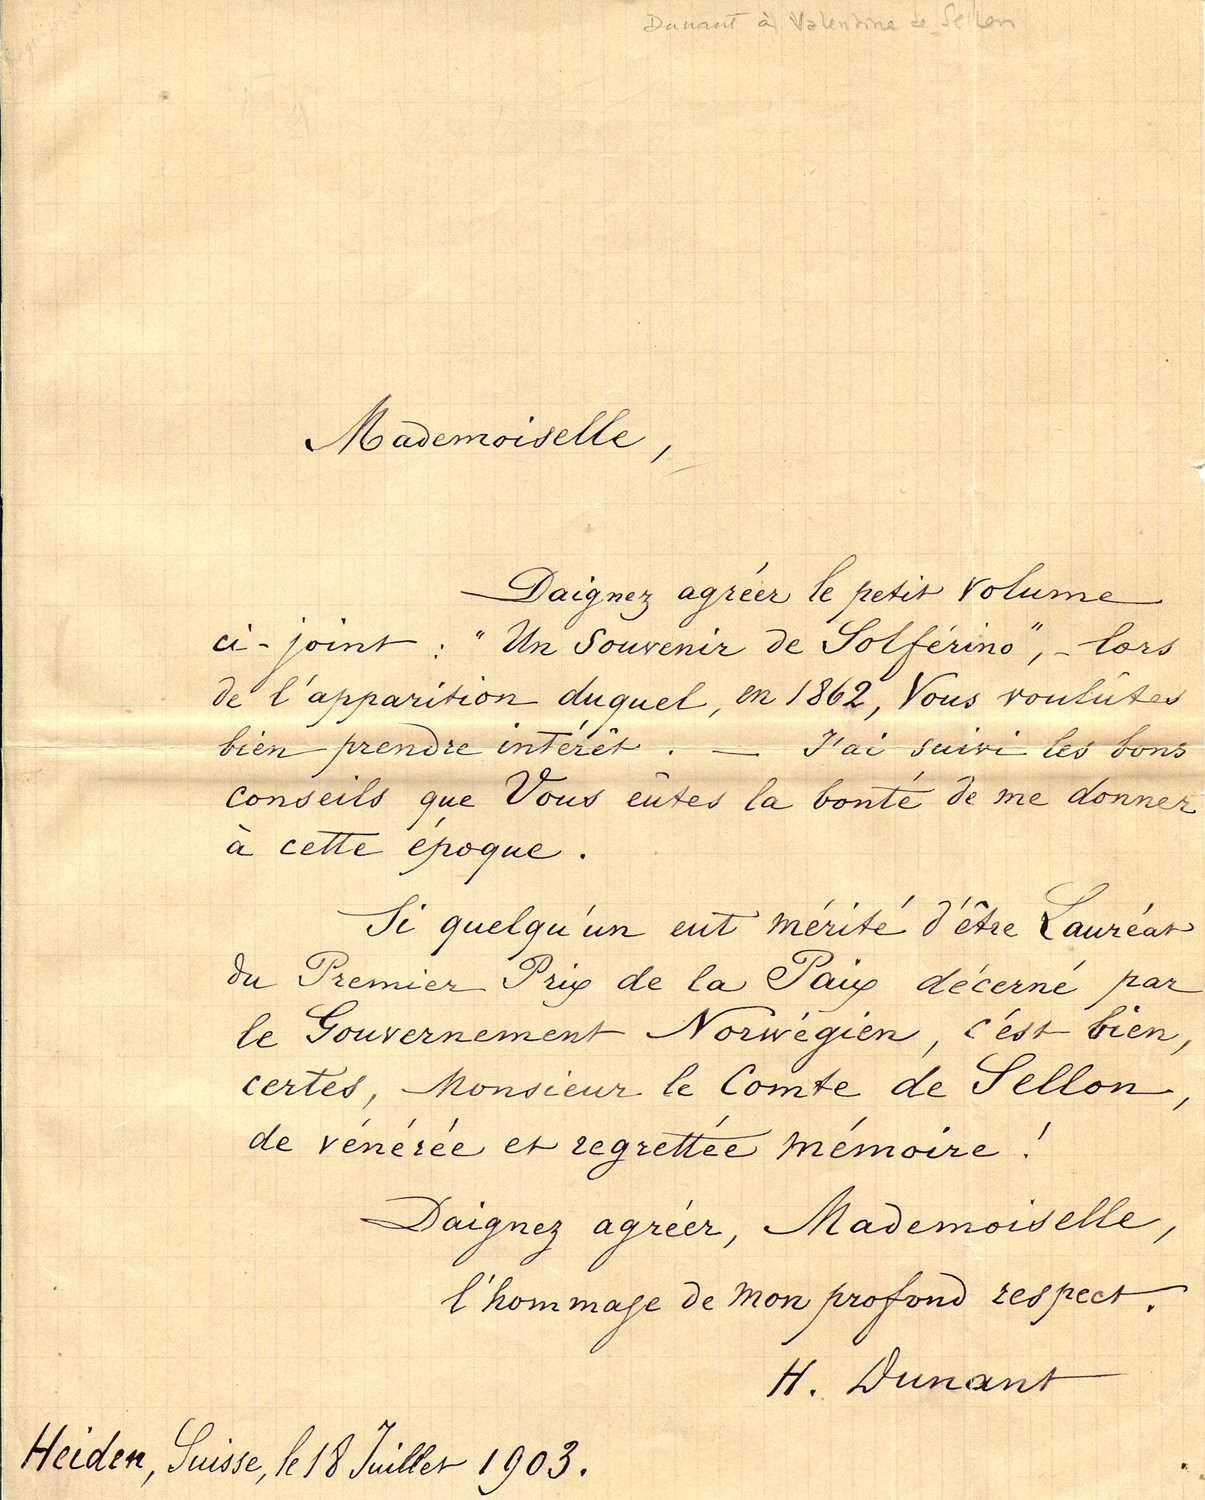 Dunant à Valentine de Sellon
Mademoiselle,
Daignez agréer le petit volume
ci-joint : "Un Souvenir de Solférino", - lors
de l'apparition duquel, en 1862, Vous voulûtes
bien prendre intérêt. — J'ai suivi les bons
conseils que Vous eûtes la bonté de me donner
à cette époque.
Si quelqu'un eut mérité d'être Lauréat
du Premier Prix de la Paix décerné par
le Gouvernement Norwégien, c'est bien,
certes, Monsieur le Comte de Sellon,
de vénérée et regrettée mémoire !
Daignez agréer, Mademoiselle,
l'hommage de mon profond respect.
H. Dunant
Heiden, Suisse, le 18 Juillet 1903.